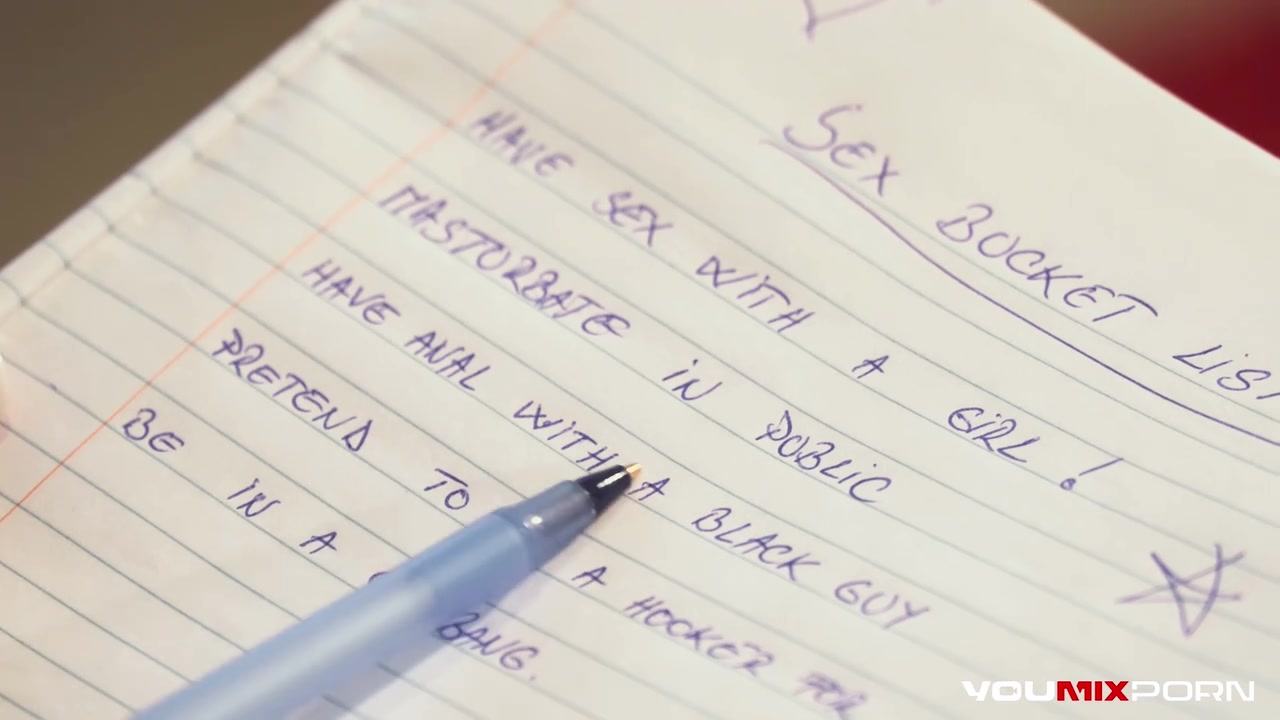 SEX BUCKET LIST
HAVE SEX WITH A GIRL!
MASTURBATE IN PUBLIC
HAVE ANAL WITH A BLACK GUY
PRETEND TO A HOCKER FOR
BE IN A BANG.
YOUMIXPORN